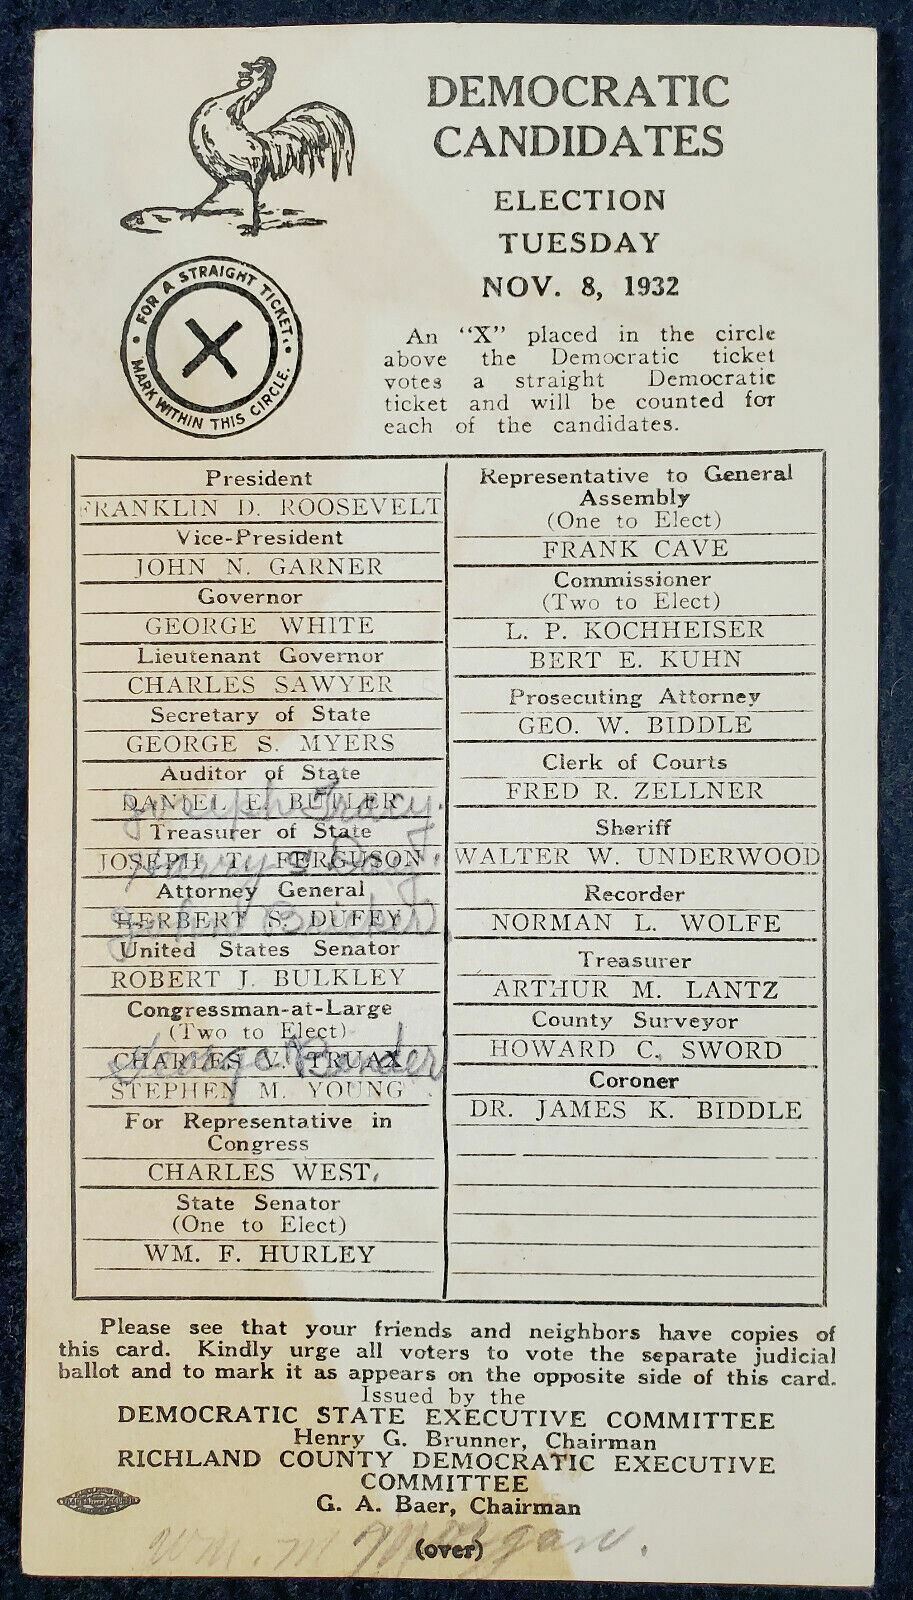 DEMOCRATIC
CANDIDATES
ELECTION
TUESDAY
NOV. 8, 1932
FOR A STRAIGHT TICKET.
MARK WITHIN THIS CIRCLE.
X
An "X" placed in the circle
above the Democratic ticket
votes a straight Democratic
ticket and will be counted for
each of the candidates.
President
FRANKLIN D. ROOSEVELT
Vice-President
JOHN N. GARNER
Governor
GEORGE WHITE
Lieutenant Governor
CHARLES SAWYER
Secretary of State
GEORGE S. MYERS
Auditor of State
DANIEL E. BUTLER
Joseph Tracy.
Treasurer of State
JOSEPH T. FERGUSON
Harry S Day.
Attorney General
HERBERT S. DUFFY
John Bricker.
United States Senator
ROBERT J. BULKLEY
Congressman-at-Large
(Two to Elect)
CHARLES V. TRUAX
George Bender
STEPHEN M. YOUNG
For Representative in
Congress
CHARLES WEST.
State Senator
(One to Elect)
WM. F. HURLEY
Representative to General
Assembly
(One to Elect)
FRANK CAVE
Commissioner
(Two to Elect)
L. P. KOCHHEISER
BERT E. KUHN
Prosecuting Attorney
GEO. W. BIDDLE
Clerk of Courts
FRED R. ZELLNER
Sheriff
WALTER W. UNDERWOOD
Recorder
NORMAN L. WOLFE
Treasurer
ARTHUR M. LANTZ
County Surveyor
HOWARD C. SWORD
Coroner
DR. JAMES K. BIDDLE
Please see that your friends and neighbors have copies of
this card. Kindly urge all voters to vote the separate judicial
ballot and to mark it as appears on the opposite side of this card.
Issued by the
DEMOCRATIC STATE EXECUTIVE COMMITTEE
Henry G. Brunner, Chairman
RICHLAND COUNTY DEMOCRATIC EXECUTIVE
COMMITTEE
G. A. Baer, Chairman
(over)
Wm. M Morgan.